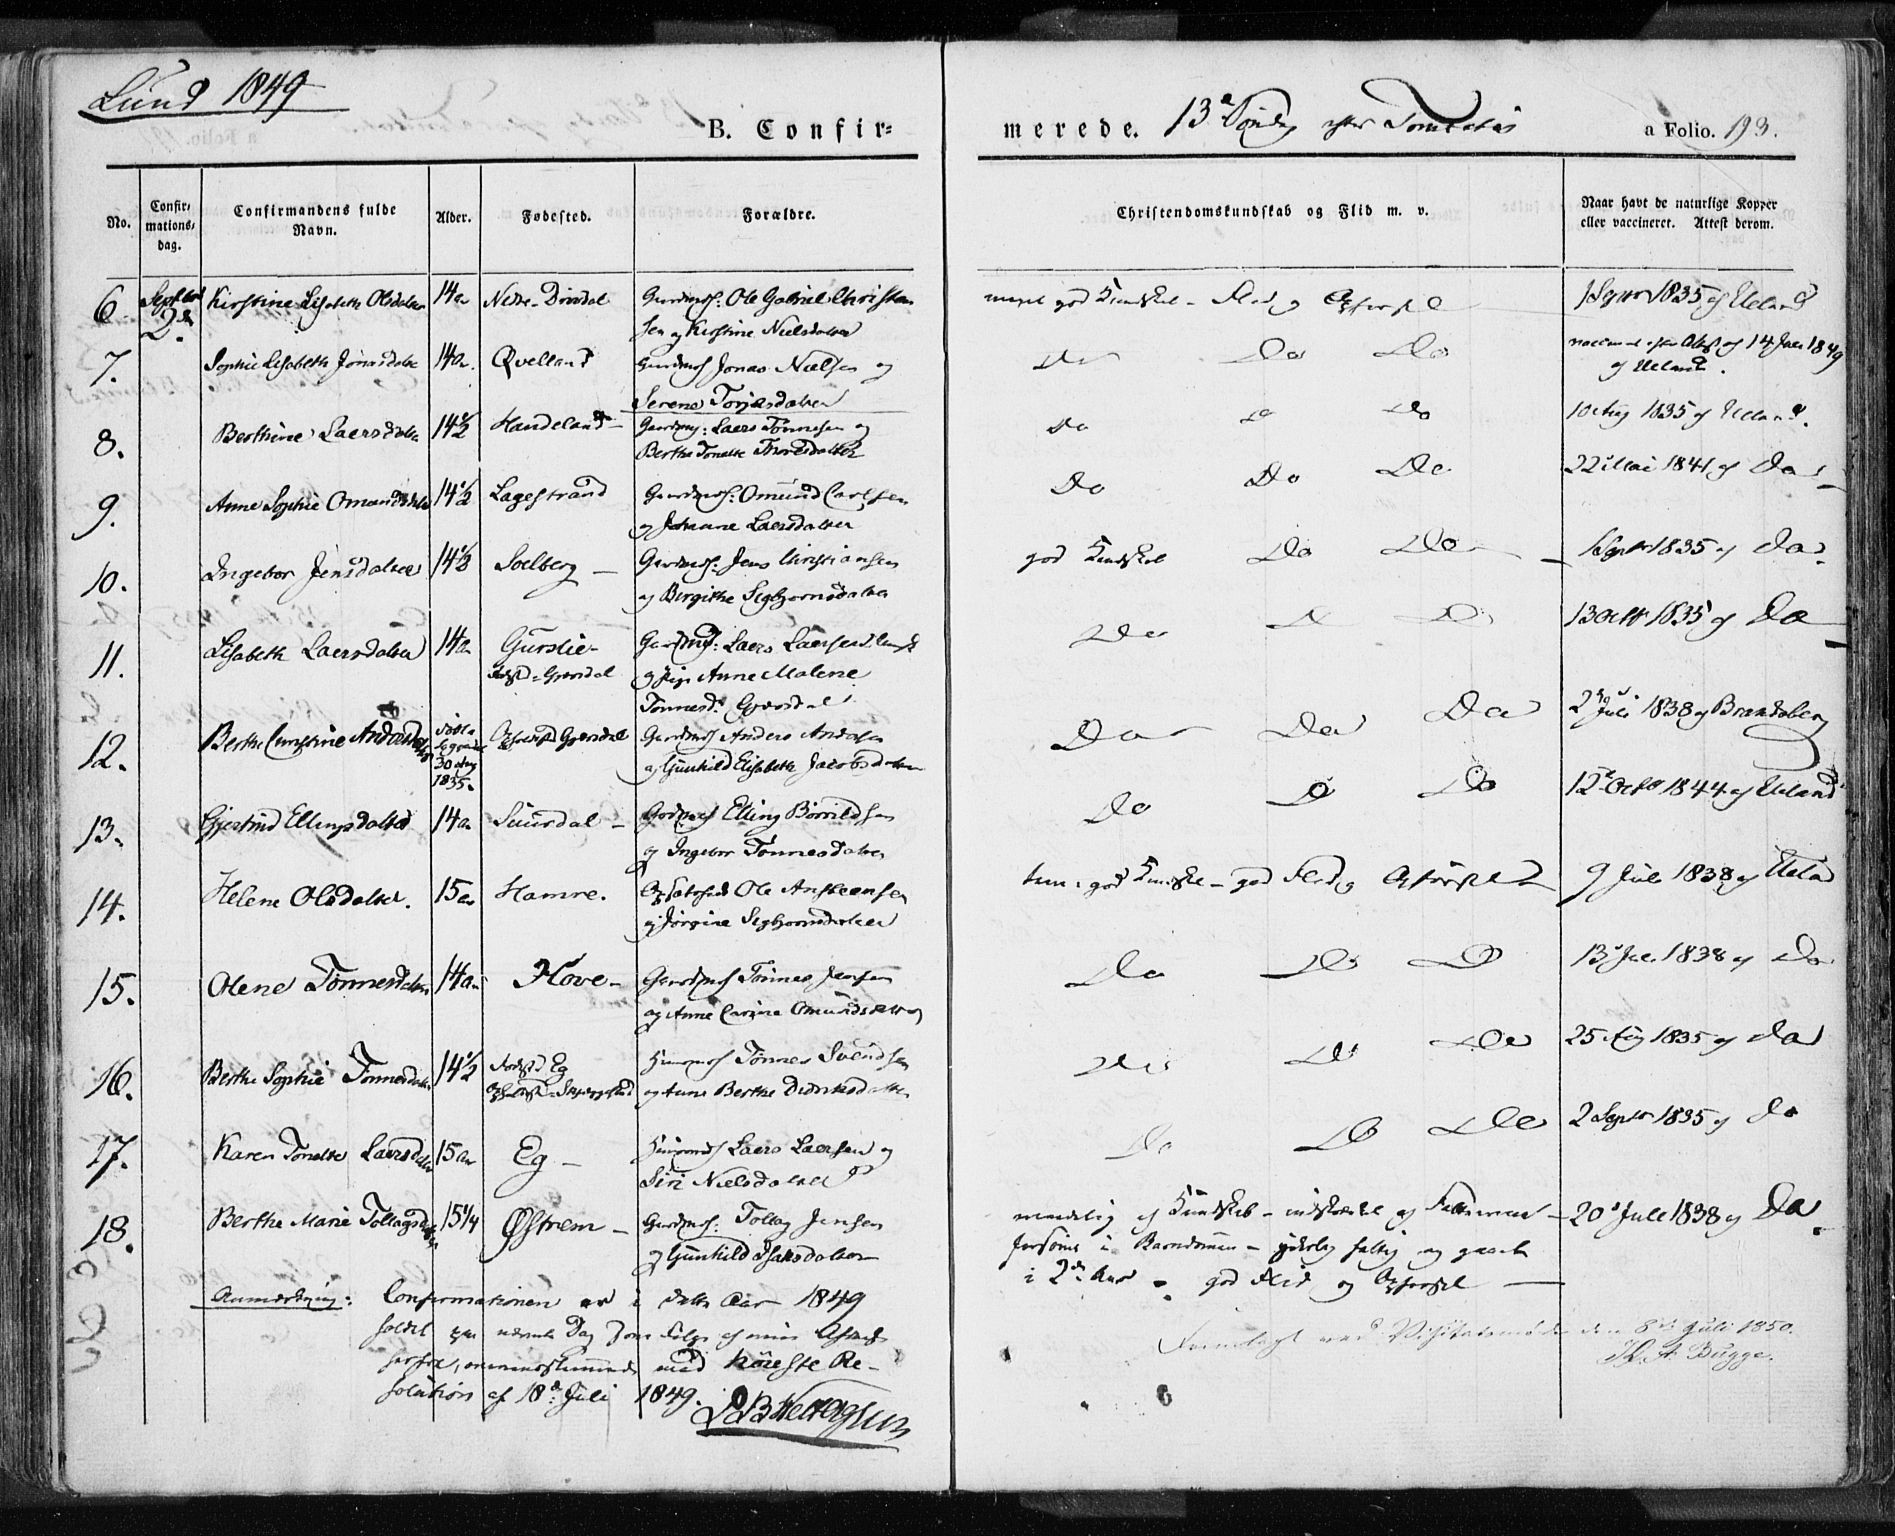 Lund 1849
B. Confir=
merede. 13de Søndag efter Trinitatis
a Folio. 193.
No.
Confir-
mations-
dag.
Confirmandens fulde
Navn.
Alder.
Fødested.
Forældre.
Christendomskundskab og Flid m. v.
Naar havt de naturlige Kopper
eller vaccineret. Attest derom.
6 Septbr 2d. Kirstine Lisabeth Olsdatter 14 a Nedre Drivdal Gaardmd: Ole Gabriel Christen
sen og Kirstine Nielsdatter
meget god Kundskab - Flid og Opførsel 1 Septbr 1835 af Ueland
7. Sophie Lisabeth Jonasdatter 14 a. Qvelland Gaardmd Jonas Nielsen og
Serene Torjesdatter
Do Do Do vaccineret efter Attest af 14 Jan 1849
af Ueland.
8. Berthine Laersdatter 14 1/2 Handeland - Gaardmd: Laers Tønnesen og
Berthe Tonette Thoresdatter
Do Do Do 10 Aug 1835 af Ueland.
9. Anne Sophie Omundsdatter 14 1/2 Lagestrand Gaardmd: Omund Carlsen
og Johanne Laersdatter
Do Do Do 22 Mai 1841 af Do
10. Ingebor Jensdatter 14 1/2 Soelberg - Gaardmd: Jens Christiansen
og Birgithe Segbjørnsdatter
god Kundskab Do Do 1 Septbr 1835 af Do.
11. Lisabeth Laersdatter 14 a Gurslie -
Gaardmd: Laers Laersen
og Pige Anne Malene
Tønnesd.
Do Do Do 13 Octbr 1835 af Do
12. Berthe Christine Andersdatter
30 Aug
1835.
Gaardmd Anders Andersen
og Gunhild Elisabeth Jacobsdatter
Do Do Do 2 Juli 1838 af Brandsberg
13. Gjertrud Ellingsdatter 14 a Suursdal - Gaardmd Elling Børrildsen
og Ingebor Tønnesdatter
Do Do Do 12 Octb 1844 af Ueland
14. Helene Olsdatter. 15 a Hamre. Ole
og Jørgine Segbjørnsdatter
god Kundskab - god Flid og Opførsel 9 Juli 1838 af Ueland
15. Olene Tønnesdatter 14 a Hove - Gaardmd Tønnes Jensen
og Anne Carine Omundsdatter
Do Do Do 13 Jul 1838 af Do
16. Berthe Sophie Tønnesdatter 14 1/2 Fødested Eg
Huusmd Tønnes Svendsen
og Anne Berthe Didriksdatter
Do Do Do 25 Aug 1835 af Do
17. Karen Tonette Laersdatter 15 a Eg - Huusmd Laers Laersen og
Siri Nielsdatter
Do Do Do 2 Septbr 1835 af Do
18. Berthe Marie Tollagsdatter 15 1/4 Østrem - Gaardmd: Tollag Jensen
og Gunhild Isaksdatter
maadelig af Kundskab - indskrænket af Nemme -
forsømt i Barndommen - yderlig fattig og gaaet
i 2de Aar - god Flid og Opførsel
20 Juli 1838 af Do.
Anmærkning: Confirmationen er i dette Aar 1849
holdt paa nævnte Dag som Følge af min
overensstemmende med høieste Re-
solution af 18de Juli 1849.
Fremlagt ved Visitatsmøde den 8de Juli 1850.
Th. A. Bugge.